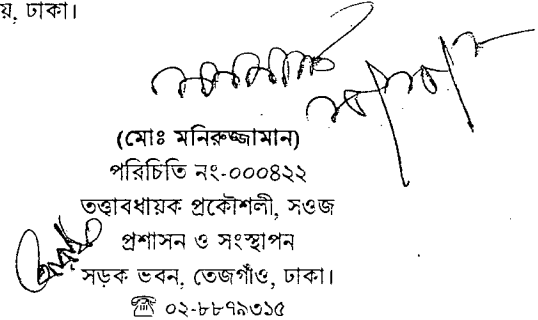 য়, ঢাকা।
(মোঃ মনিরুজ্জামান)
পরিচিতি নং-০০০৪২২
তত্ত্বাবধায়ক প্রকৌশলী, সওজ
প্রশাসন ও সংস্থাপন
সড়ক ভবন, তেজগাঁও, ঢাকা।
☎ ০২-৮৮৭৯৩১৫